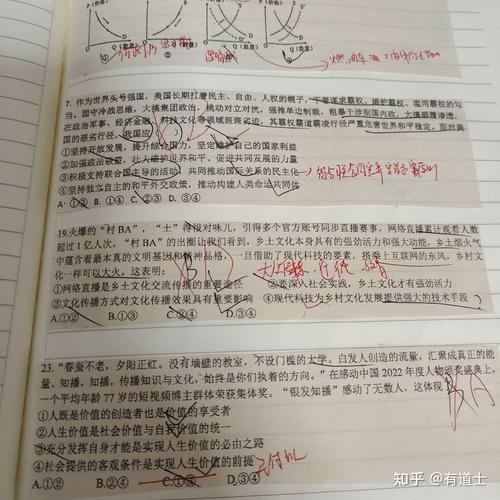 P(价格) P(价格)
Q(数量) Q(数量) Q(数量) Q(数量)
① ② ③ ④
7. 作为世界头号强国,美国长期打着民主、自由、人权的幌子,干着谋求霸权、维护霸权、滥用霸权的勾
当。固守冷战思维,大搞集团政治,挑动对立对抗,强推单边制裁,粗暴干涉别国内政,大搞颠覆渗透,
在政治军事、经济金融、科技文化等领域斑斑劣迹,其霸权霸道霸凌行径严重危害世界和平稳定。面对美
国的恶劣行径,我国应
①坚持开放发展,提升综合国力,坚定维护自己的国家利益
②加强政治联盟,壮大维护世界和平、促进共同发展的力量
③积极支持联合国主导的活动,共同推动国际关系的民主化
④坚持独立自主的和平外交政策,推动构建人类命运共同体
A. ①② B. ①④ C. ②③ D. ③④
19.火爆的“村BA”,“土”得很对味儿,引得多个官方账号同步直播赛事,网络直播累计观看人数
超过1亿人次。“村BA”的出圈让我们看到,乡土文化本身具有的强劲活力和强大动能,乡土烟火气
中蕴含着最本真的文明基因和精神品格,一旦借助了现代科技的要素,搭乘上互联网的东风,乡村文
化一样可以大火。这表明:
①网络直播是乡土文化交流传播的重要途径 ②要深入社会实践,乡土文化才有强劲活力
③文化传播方式对文化传播效果具有重要影响 ④现代科技为乡村文化发展提供强大的技术手段
A.①② B.①③ C.②④ D.③④
23.“春蚕不老,夕阳正红。没有墙壁的教室,不设门槛的大学。白发人创造的流量,汇聚成真正的能
量。知播,知播,传播知识与文化,始终是你们执着的方向。”在感动中国2022年度人物颁奖盛典上,
一个平均年龄77岁的短视频博主群体荣获集体奖。“银发知播”感动了无数人,这体现
①人既是价值的创造者也是价值的享受者
②人生价值是社会价值与自我价值的统一
③充分发挥自身才能是实现人生价值的必由之路
④社会提供的客观条件是实现人生价值的前提
A.①② B.②④ C.①③ D.③④
B A
知乎 @有道士